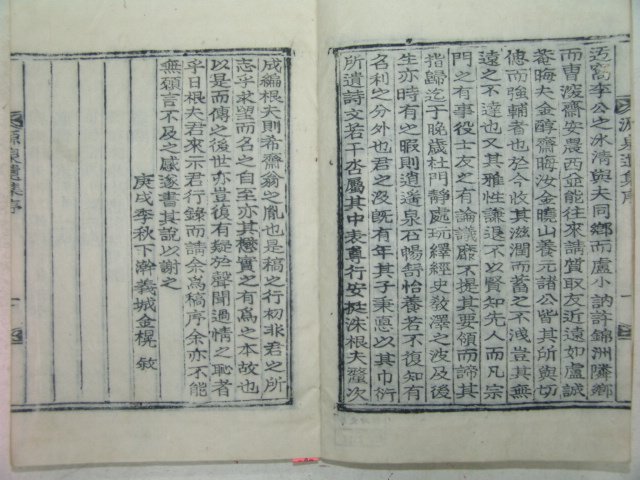 迃窩李公之氷清與夫同鄉而盧小訥許錦洲隣鄉
而曺復齋安農西金能往來請質取友近遠如盧誠
菴晦夫金醇齋晦汝金曉山養元諸公皆其所與切
偲而強輔者也於收其滋潤而蓄之不淺豈其無
遠之不達而又其雅性謙退不以賢知先人而凡宗
門之有事役士友之有論議靡不提其要領而諦其
指歸迄于晚歲杜門靜處玩繹經史敎澤之波及後
生亦時有之暇則逍遙泉石暢舒怡養若不復知有
名利之分外也君之沒旣有年其子秉慤以其巾衍
所遺詩文若干沓屬其中表尊行安挺洙根夫釐次
成編根夫則希齋翁之胤也是稿之行初非君之所
志乎求望而名之自至亦其懋實之有爲之本故也
以是而傳之後世亦豈復有疑於聲聞過情之恥者
乎日根夫君來示君行錄而請余爲稿序余亦不能
無願言不及之感遂書其說以謝之
庚戌季秋下澣義城金榥敬
源泉遺集序